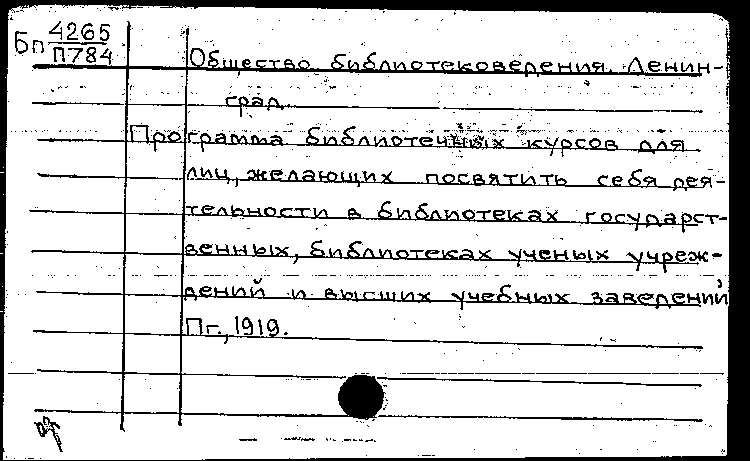 Бп 4265
П784
Общество библиотековедения. Ленин-
град.
Программа библиотечных курсов для
лиц, желающих посвятить себя дея-
тельности в библиотеках государст-
венных, библиотеках ученых учреж-
дений и высших учебных заведений,
Пг., 1919.